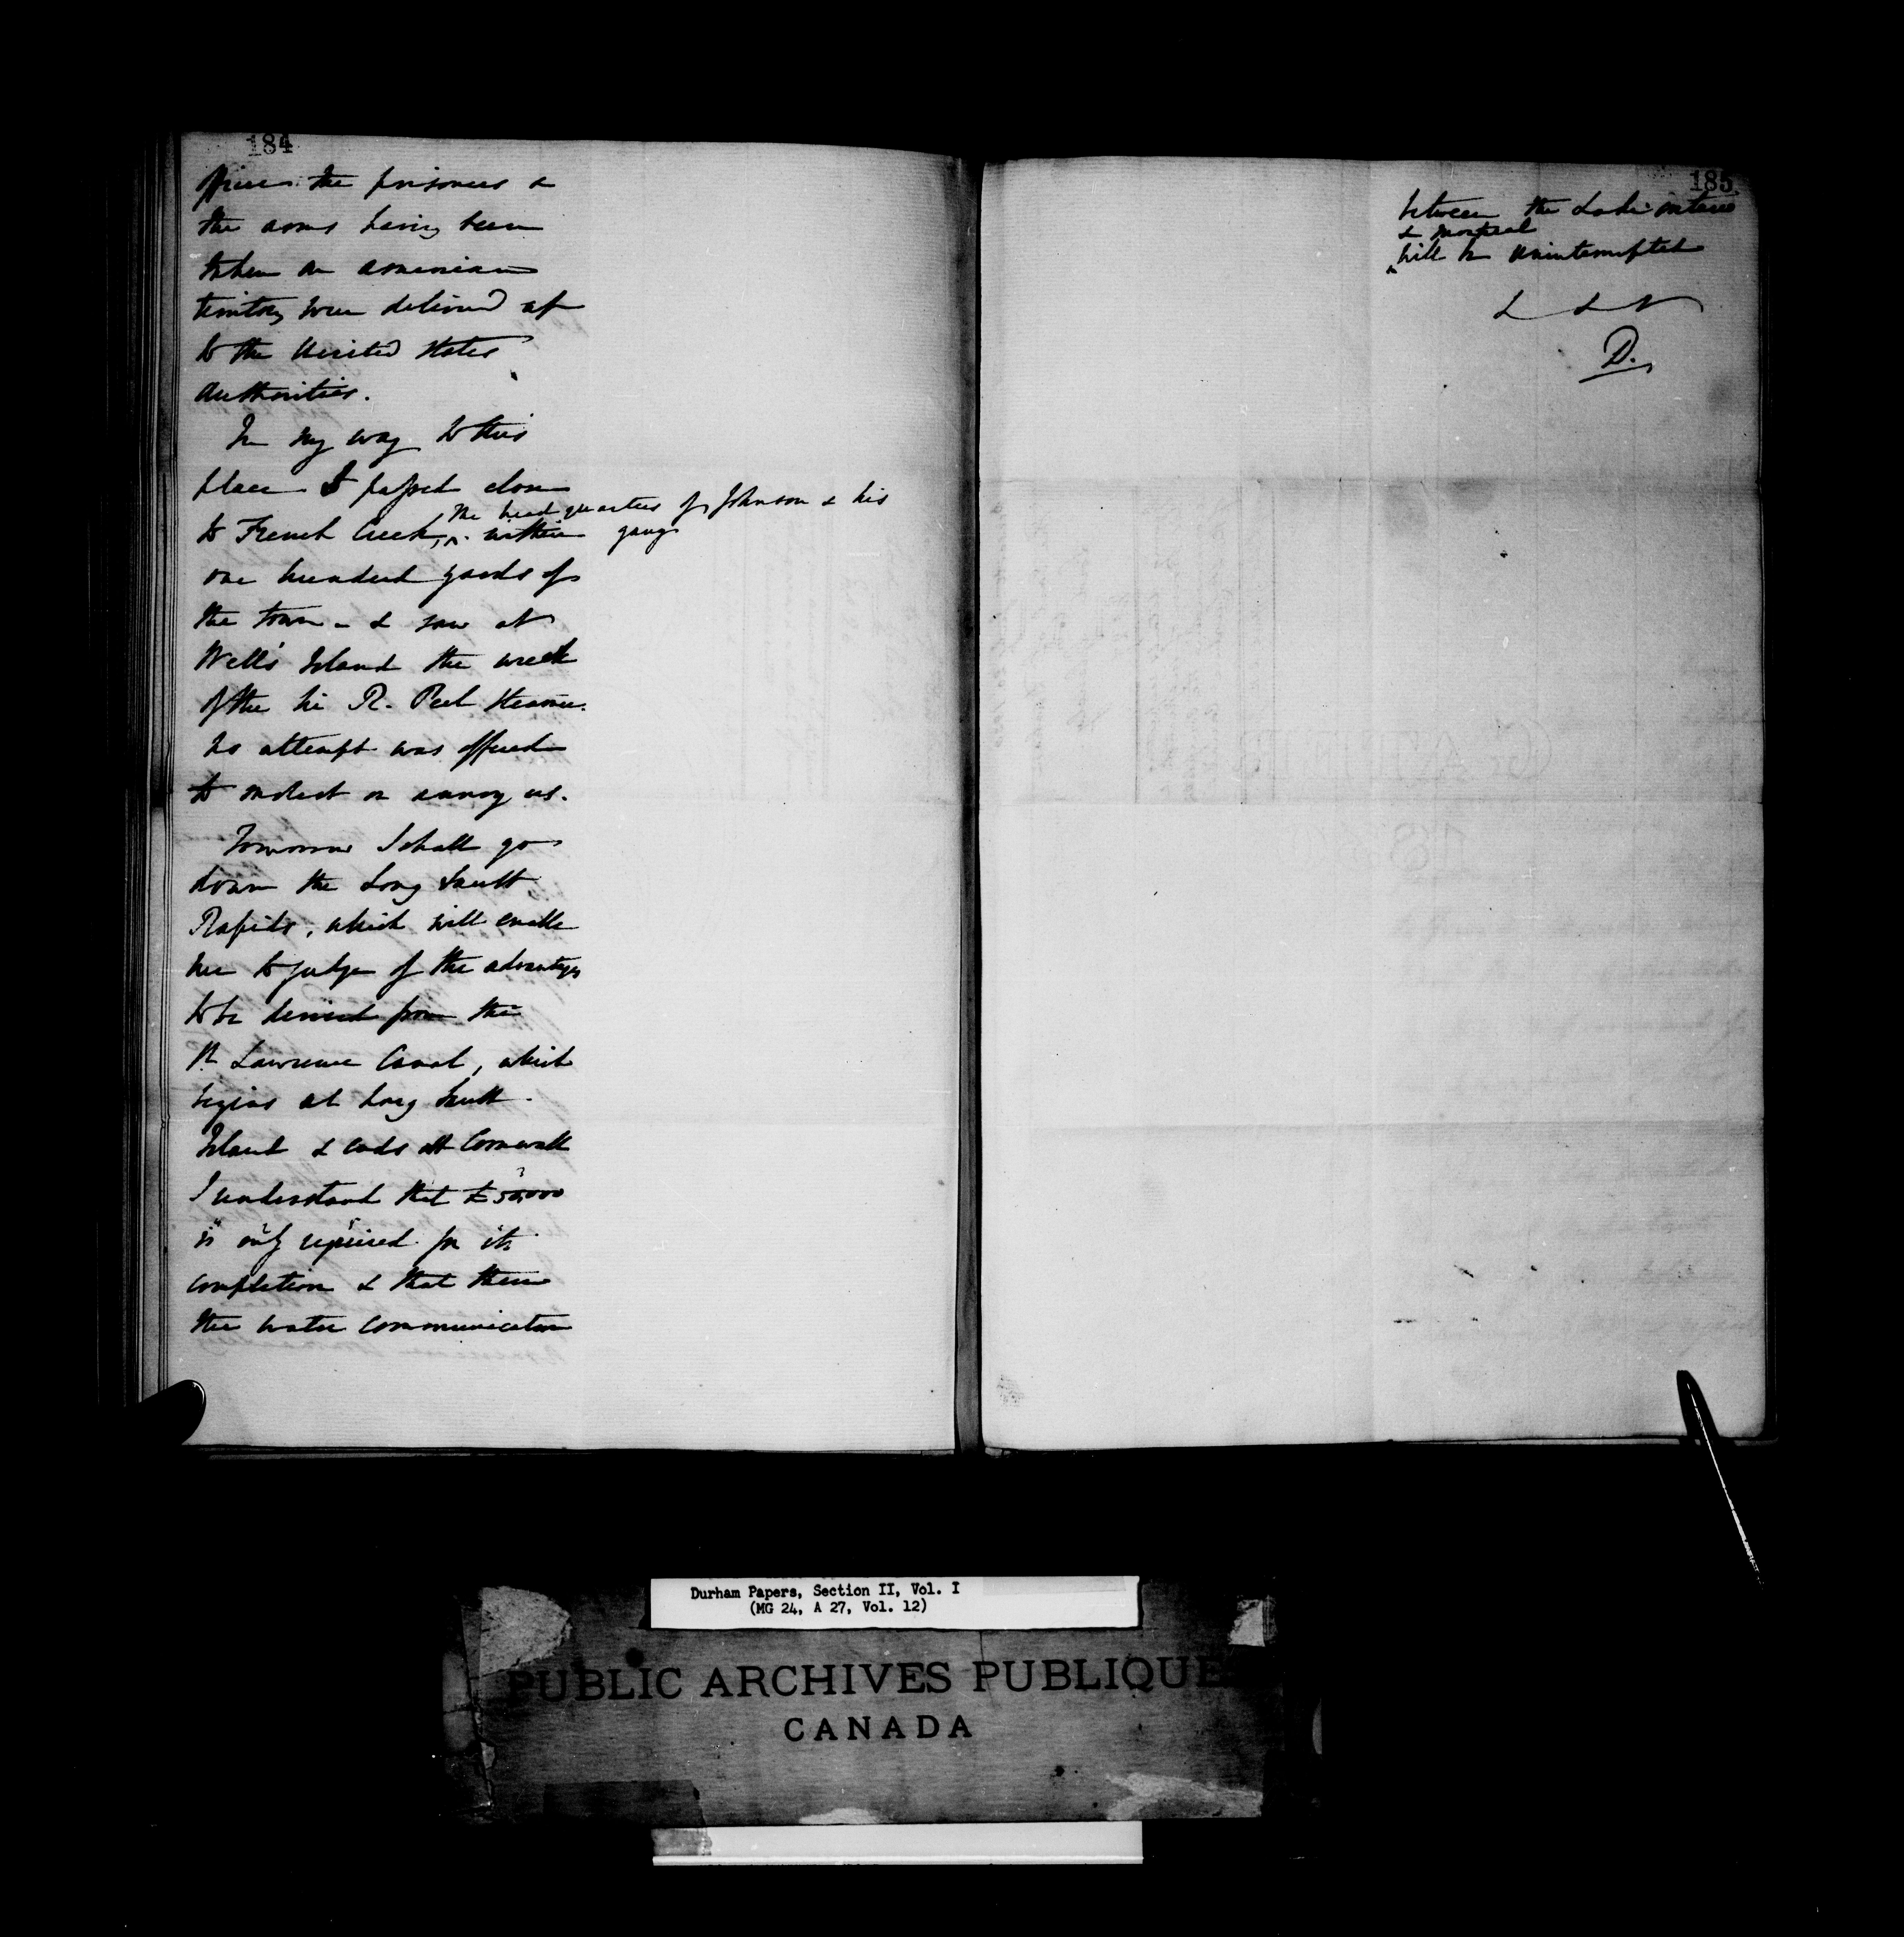 184
officers the prisoners &
the arms having been
taken on American
territory were delivered up
to the United States
Authorities.
In my way to this
place I passed close
the head quarters of Johnson & his
to French Creek, ^ within gang
one hundred yards of
the town - & saw at
Wells Island the wreck
of the Sir R. Peel Steamer.
No attempt was offered
to molest or annoy us.
Tomorrow I shall go
down the Long Sault
Rapids, which will enable
me to judge of the advantages
to be derived from the
St. Lawrence Canal, which
begins at Long Sault
Island & ends at Cornwall
I understand that £50,000
is only required for its
completion & that then
the water communication
185
between the Lake Ontario
& Montreal
^ will be uninterrupted
& & &
D.
Durham Papers, Section II, Vol. I
(MG 24, A 27, Vol. 12)
PUBLIC ARCHIVES PUBLIQUE
CANADA